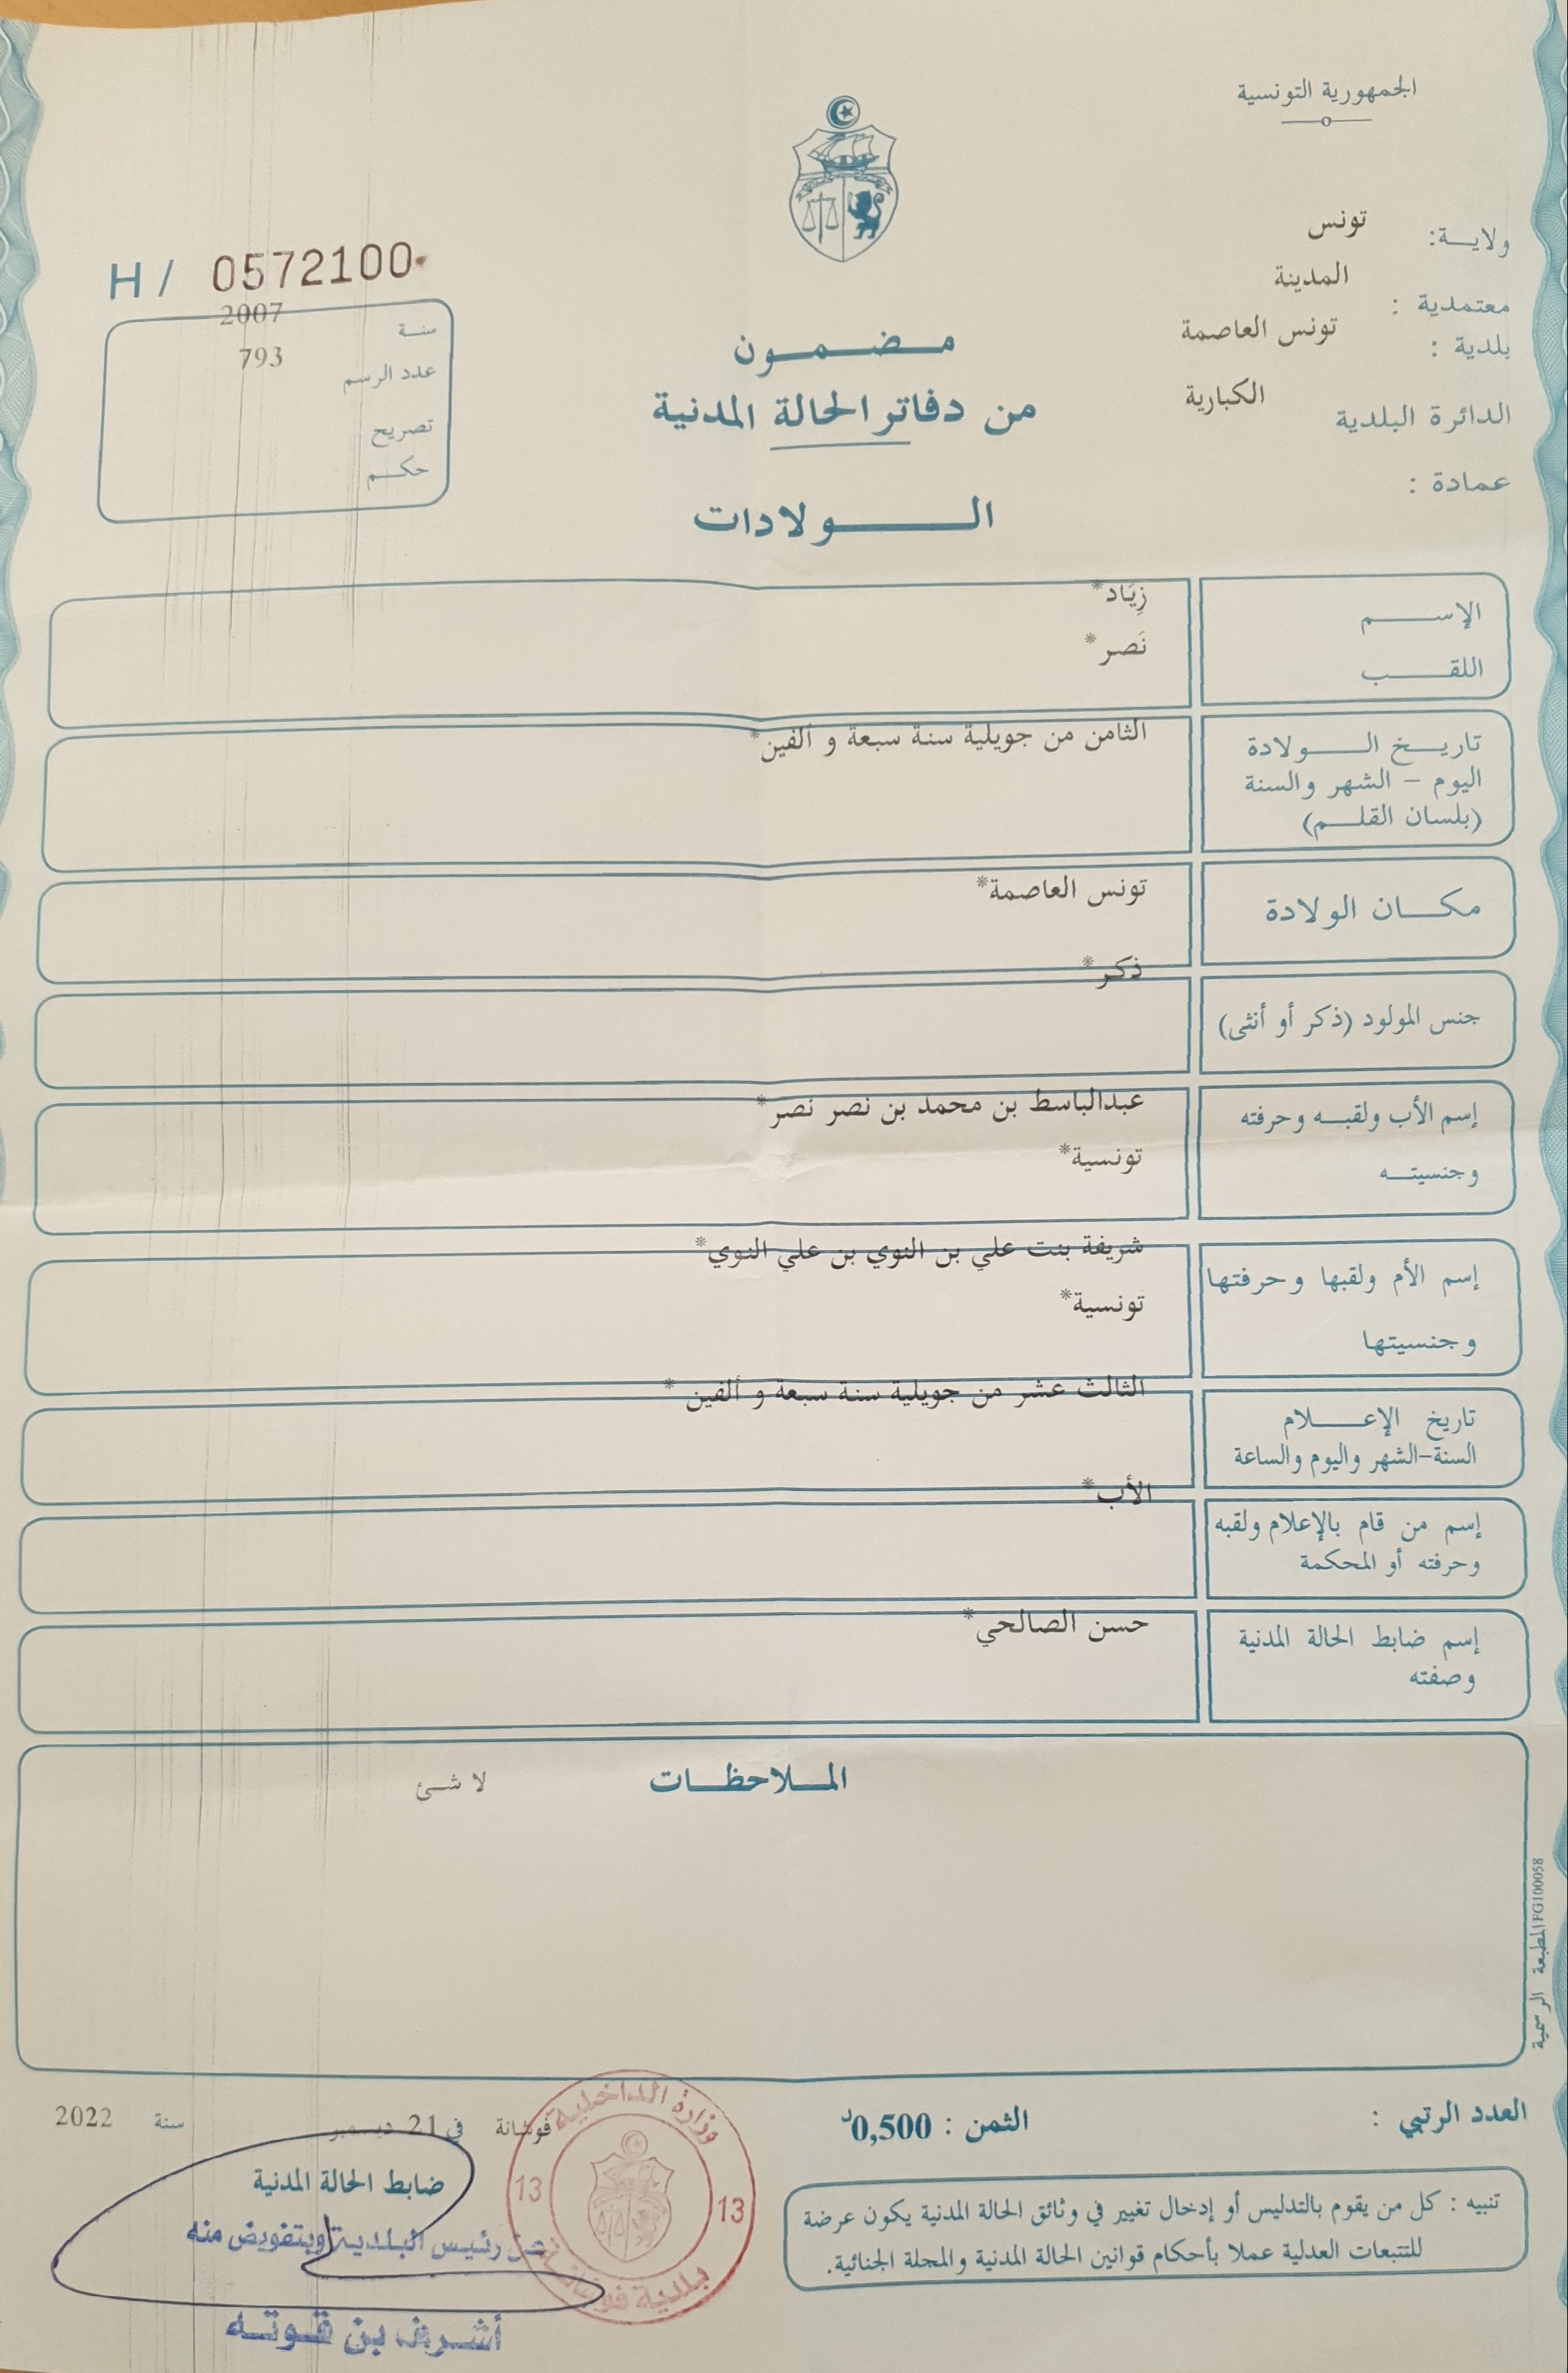 الجمهورية التونسية
ولاية: تونس
معتمدية : المدينة
بلدية : تونس العاصمة
الدائرة البلدية الكبارية
عمادة :
H/ 0572100
سنة 2007
عدد الرسم 793
تصريح
حكم
مضمون
من دفاتر الحالة المدنية
الولادات
الإسم زِيَاد*
اللقب نَصر*
تاريخ الولادة الثامن من جويلية سنة سبعة و ألفين*
اليوم - الشهر والسنة
(بلسان القلم)
مكان الولادة تونس العاصمة*
جنس المولود (ذكر أو أنثى) ذكر*
إسم الأب ولقبه وحرفته عبدالباسط بن محمد بن نصر نصر*
وجنسيته تونسية*
إسم الأم ولقبها وحرفتها شريفة بنت علي بن النوي بن علي النوي*
وجنسيتها تونسية*
تاريخ الإعلام الثالث عشر من جويلية سنة سبعة و ألفين *
السنة-الشهر واليوم والساعة
إسم من قام بالإعلام ولقبه الأب*
وحرفته أو المحكمة
إسم ضابط الحالة المدنية حسن الصالحي*
وصفته
الملاحظات لا شئ
المطبعة الرسمية FG100058
العدد الرتبي :
الثمن : 0,500د
فوشانة في 21 ديسمبر سنة 2022
ضابط الحالة المدنية
عن رئيس البلدية وبتفويض منه
أشرف بن قوته
وزارة الداخلية
13 13
بلدية فوشانة
تنبيه : كل من يقوم بالتدليس أو إدخال تغيير في وثائق الحالة المدنية يكون عرضة
للتتبعات العدلية عملا بأحكام قوانين الحالة المدنية والمجلة الجنائية.